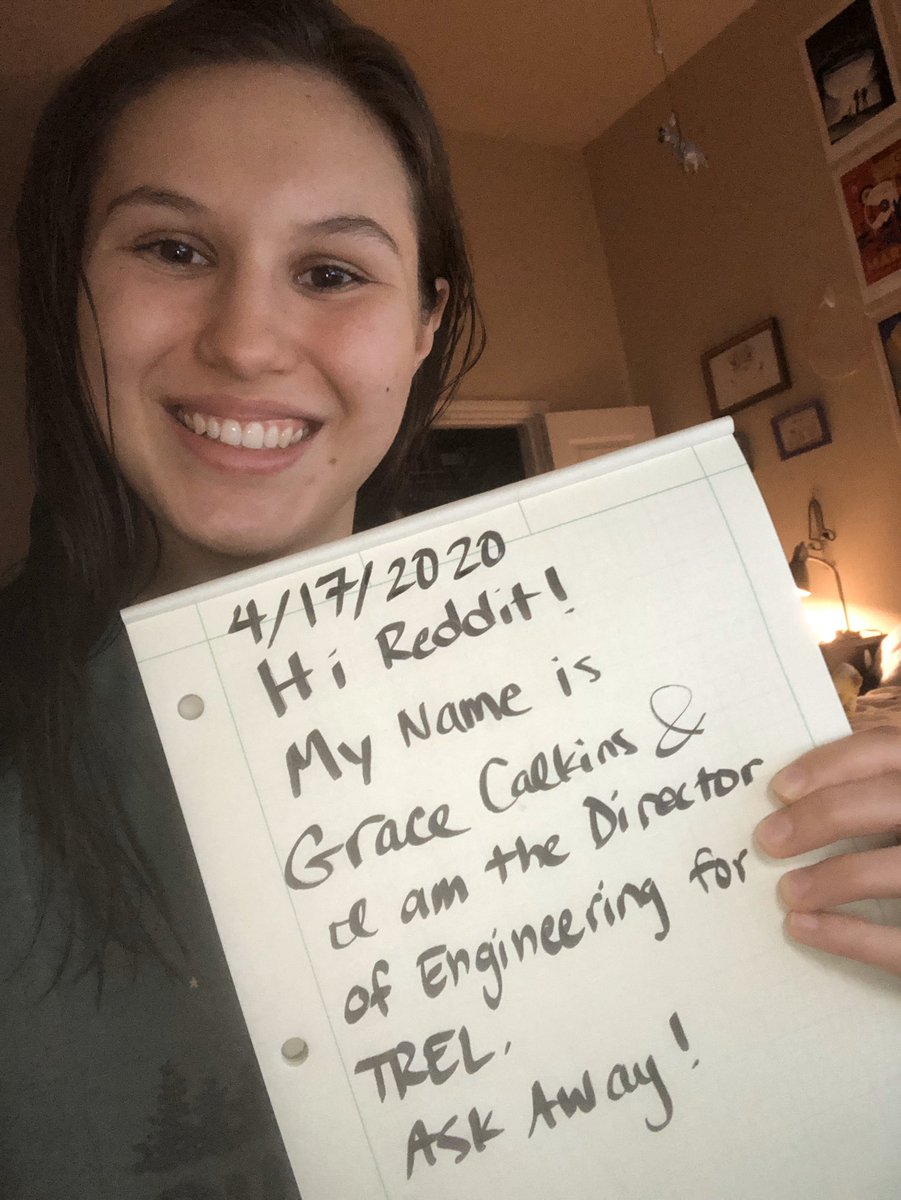 4/17/2020
Hi Reddit!
My Name is
Grace Calkins &
I am the Director
of Engineering for
TREL.
Ask Away!